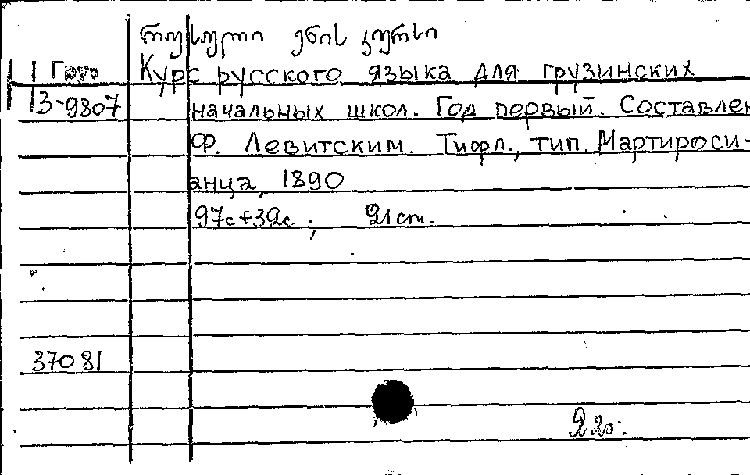 რუსული ენის კურსი
1 Груз
Курс русского языка для грузинских
3-9807
начальных школ. Год первый. Составлен
Ф. Левитским. Тифл., тип. Мартироси-
анца, 1890
97с+32с ; 21cm.
37081